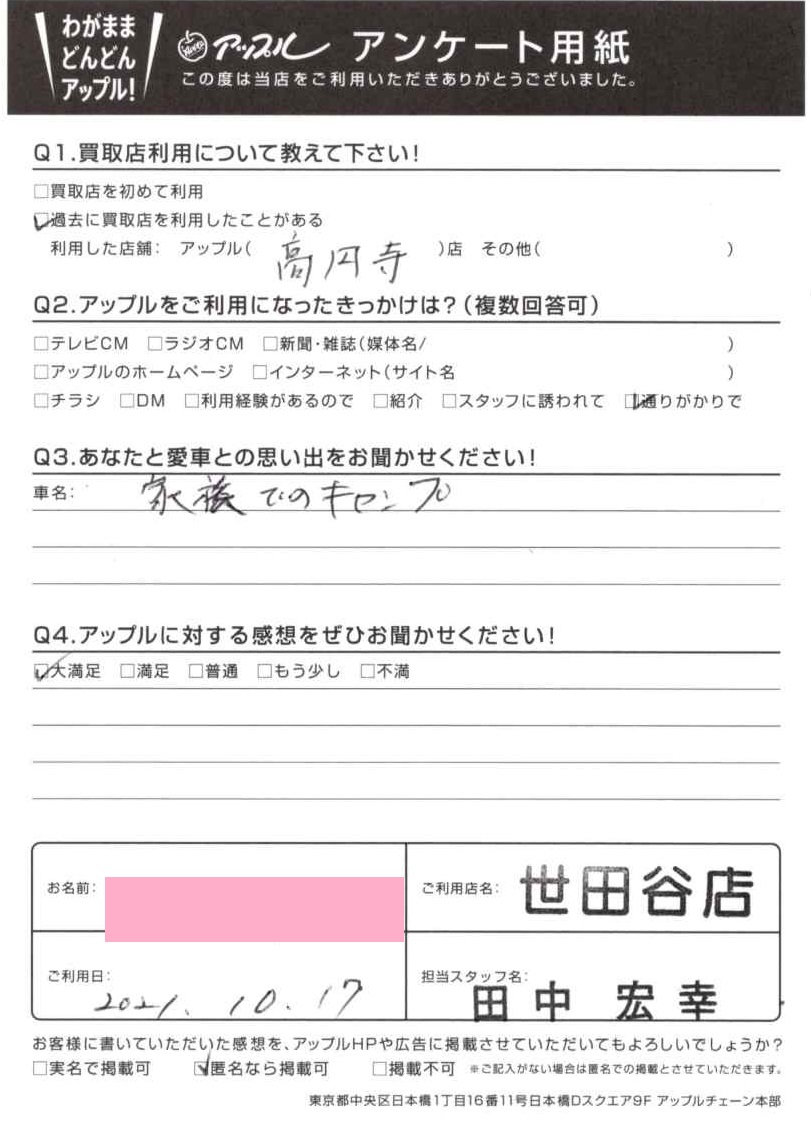 わがまま
どんどん
アップル!
アップル アンケート用紙
この度は当店をご利用いただきありがとうございました。
Q1.買取店利用について教えて下さい!
□買取店を初めて利用
☑過去に買取店を利用したことがある
利用した店舗: アップル( 高円寺 )店 その他( )
Q2.アップルをご利用になったきっかけは?(複数回答可)
□テレビCM □ラジオCM □新聞・雑誌(媒体名/ )
□アップルのホームページ □インターネット(サイト名 )
□チラシ □DM □利用経験があるので □紹介 □スタッフに誘われて ☑通りがかりで
Q3.あなたと愛車との思い出をお聞かせください!
車名: 家族でのキャンプ
Q4.アップルに対する感想をぜひお聞かせください!
☑大満足 □満足 □普通 □もう少し □不満
お名前:
ご利用店名: 世田谷店
ご利用日: 2021. 10. 17
担当スタッフ名: 田中 宏幸
お客様に書いていただいた感想を、アップルHPや広告に掲載させていただいてもよろしいでしょうか?
□実名で掲載可 ☑匿名なら掲載可 □掲載不可 ※ご記入がない場合は匿名での掲載とさせていただきます。
東京都中央区日本橋1丁目16番11号日本橋Dスクエア9F アップルチェーン本部